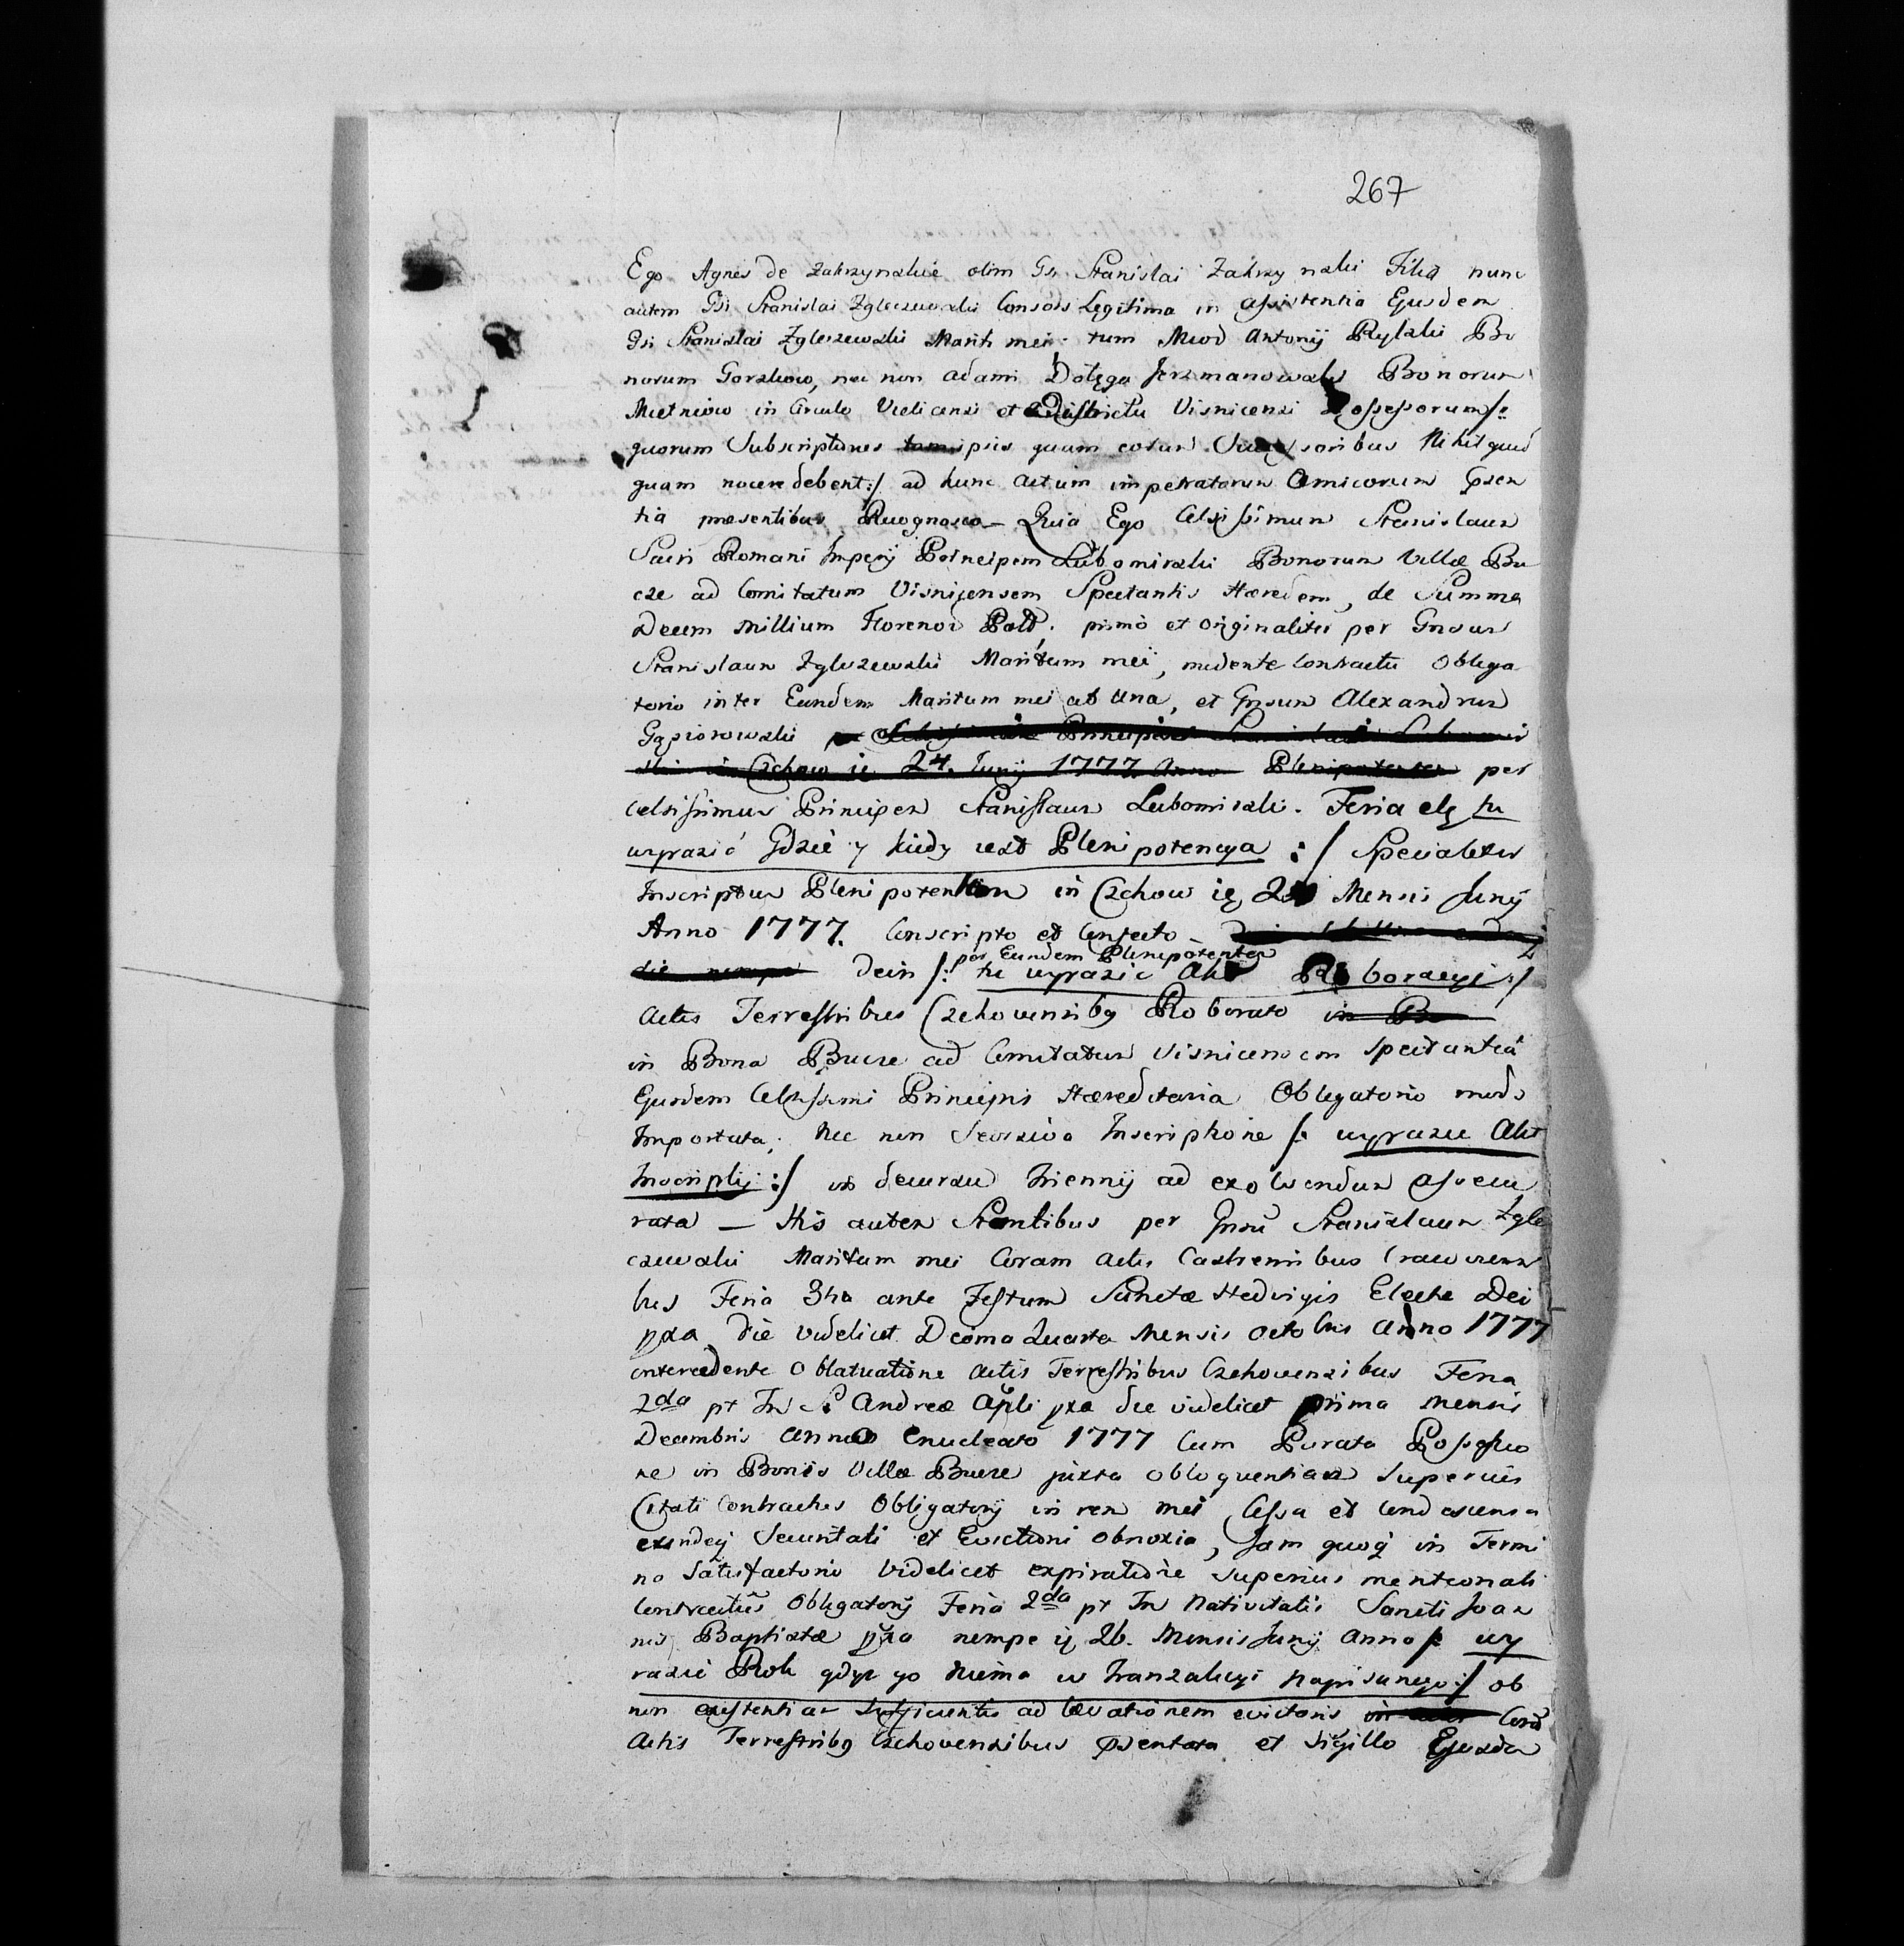 267
Ego Agnes de Zakrzynskie olim Gsi Stanislai Zakrzynskii Filia nunc
autem Gsi Stanislai Zgleczewskii Consors Legitima in assistentia Ejusdem
Gsi Stanislai Zgleczewskii Mariti mei tum Antonij Rylskii Bo
norum Gorzkow, nec non Adami Dołęga Jerzmanowskii Bonorum
Mietniow in Circulo Vielicensi et Districtu Visnicensi Possessorum /:
quorum Subscriptiones ipsis quam eorum Successoribus Nihil quid
quam nocere debent :/ ad hunc Actum impetratorum Amicorum Psen
tia praesentibus Recognosco – Quia Ego Celsissimum Stanislaum
Sacri Romani Imperij Principem Lubomirskii Bonorum Villæ Bu
cze ad Comitatum Visnicensem Spectantis Hæredem, de Summa
Decem Millium Florenor Pold. primo et originaliter per Gnosum
Stanislaum Zgleczewskii Maritum mei, mediente Contractu Obliga
torio inter Eundem Maritum mei ab una, et Gnosum Alexandrum
Gąsiorowskii Principis Lubomir
skii in Czchow ię 24. Junij 1777. Anno Plenipotenten per
Celsissimum Principem Stanislaum Lubomirskii. Feria etę tu
wyrazić Gdzie y kiedy iest Plenipotencya :/ Specialiter
Inscriptum Plenipotenten in Czchow ię 24 Mensis Junij
Anno 1777. Conscripto et Confecto
per Eundem Plenipotenten
dein /: tu wyrazic Akt Roboracyi :/
Actis Terrestribus Czchovensibq Roborato in B
in Bona Bucze ad Comitatum Visnicensem spectantia
Ejusdem Celsissimi Principis Hæreditaria Obligatorio modo
Importata, nec non Seorsivo Inscriptione /: wyrazic Akt
Inscripcij :/ in decursu Triennij ad exolvendum assecu
rata – His autem Stantibus per Gnsu Stanislaum Zgle
czewskii Maritum mei Coram Actis Castrensibus Cracoviensi
bus Feria 3tia ante Festum Sanctæ Hedvigis Electæ Dei
pxa die videlicet Decima Quarta Mensis Octobris Anno 1777
intercedente Oblatuatione Actis Terrestribus Czchovensibus Feria
2da pt Fn S. Andreæ Apli pxa die videlicet prima mensis
Decembris Anno Enucleato 1777 Cum Purata Possessio
ne in Bonis Villæ Bucze juxta obloquentiam superius
Citati Contractus Obligatorij in rem mei Cessa et Condescensa
exindeq Securitati et Evictioni obnoxia, Jam quoq in Termi
no Satisfactorio Videlicet expiratione superius mentionati
Contractus Obligatorij Feria 2da pt Fn Nativitatis Sancti Joan
nis Baptistæ pxa nempe ij 26. Mensis Junij Anno /: wy
razić Rok gdyż go niema w Tranzakcyi Napisanego :/ ob
non existentiam Sufficientis ad Levationem evictoris Corā
Actis Terrestribq Czchovensibus Psentata et Sigillo Ejusdem